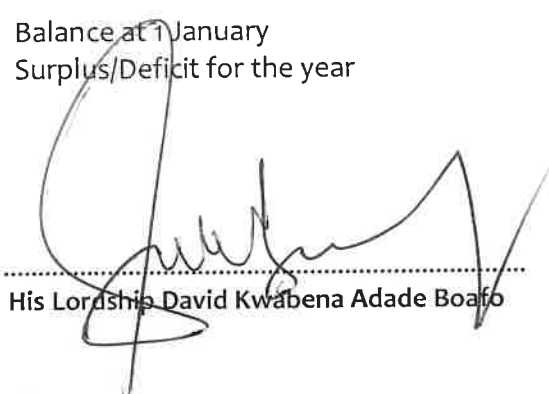 Balance at 1 January
Surplus/Deficit for the year
His Lordship David Kwabena Adade Boafo